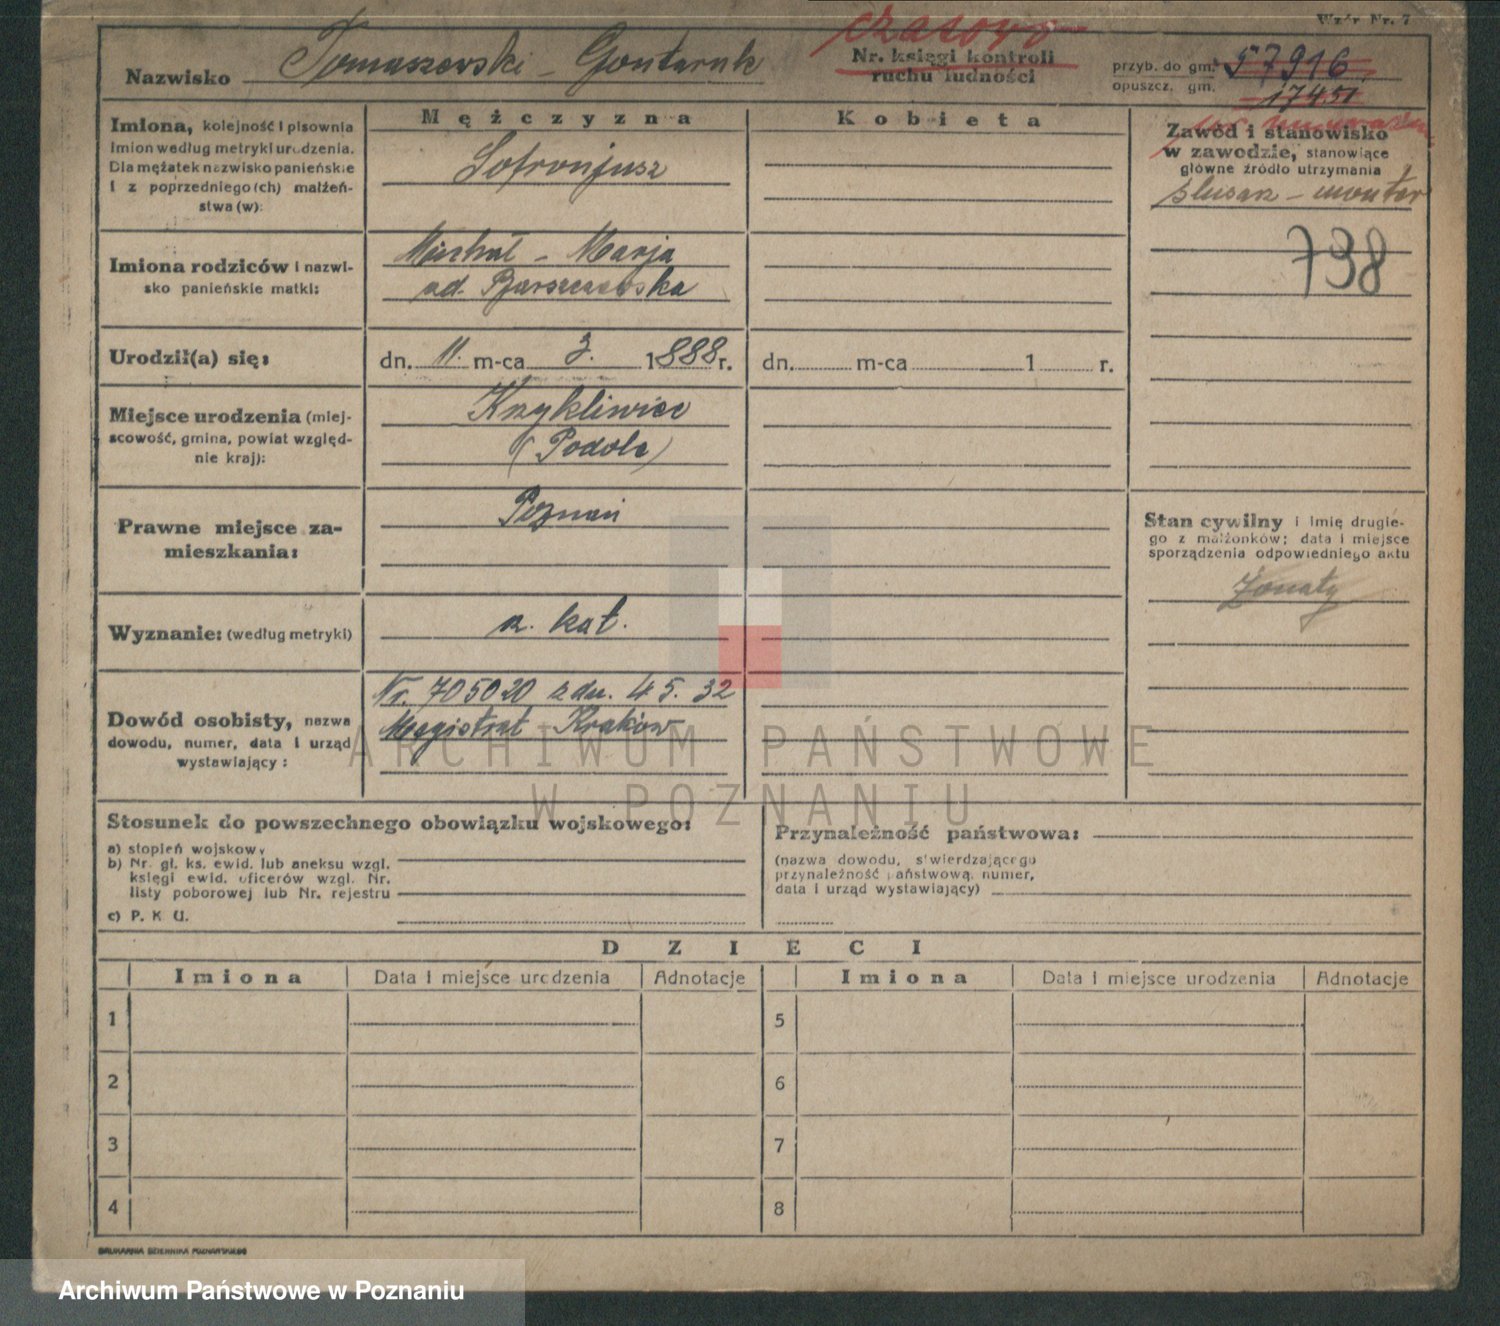 Wzór Nr. 7
czasowo
Nazwisko Tomaszewski - Gontaruk
Nr. księgi kontroli
ruchu ludności
przyb. do gm. 57916
opuszcz. gm. 17451
Imiona, kolejność i pisownia
imion według metryki urodzenia.
Dla mężatek nazwisko panieńskie
i z poprzedniego(ch) małżeń-
stwa(w):
Mężczyzna
Kobieta
Sofronjusz
Zawód i stanowisko
w zawodzie, stanowiące
główne źródło utrzymania
ślusarz - monter
738
Imiona rodziców i nazwi-
sko panieńskie matki:
Michał - Marja
od. Barszczewska
Urodził(a) się:
dn. 11. m-ca 3. 1888 r.
dn. m-ca 1 r.
Miejsce urodzenia (miej-
scowość, gmina, powiat względ-
nie kraj):
Krzykliwiec
(Podole)
Prawne miejsce za-
mieszkania:
Poznań
Stan cywilny i imię drugie-
go z małżonków; data i miejsce
sporządzenia odpowiedniego aktu
żonaty
Wyznanie: (według metryki)
rz. kat.
Dowód osobisty, nazwa
dowodu, numer, data i urząd
wystawiający:
Nr. 705020 z dn. 4 5. 32
Magistrat Kraków
ARCHIWUM PAŃSTWOWE
W POZNANIU
Stosunek do powszechnego obowiązku wojskowego:
a) stopień wojskowy
b) Nr. gł. ks. ewid. lub aneksu wzgl.
księgi ewid. oficerów wzgl. Nr.
listy poborowej lub Nr. rejestru
c) P. K U.
Przynależność państwowa:
(nazwa dowodu, stwierdzającego
przynależność państwową, numer,
data i urząd wystawiający)
DZIECI
Imiona Data i miejsce urodzenia Adnotacje Imiona Data i miejsce urodzenia Adnotacje
1 5
2 6
3 7
4 8
DRUKARNIA DZIENNIKA POZNAŃSKIEGO
Archiwum Państwowe w Poznaniu